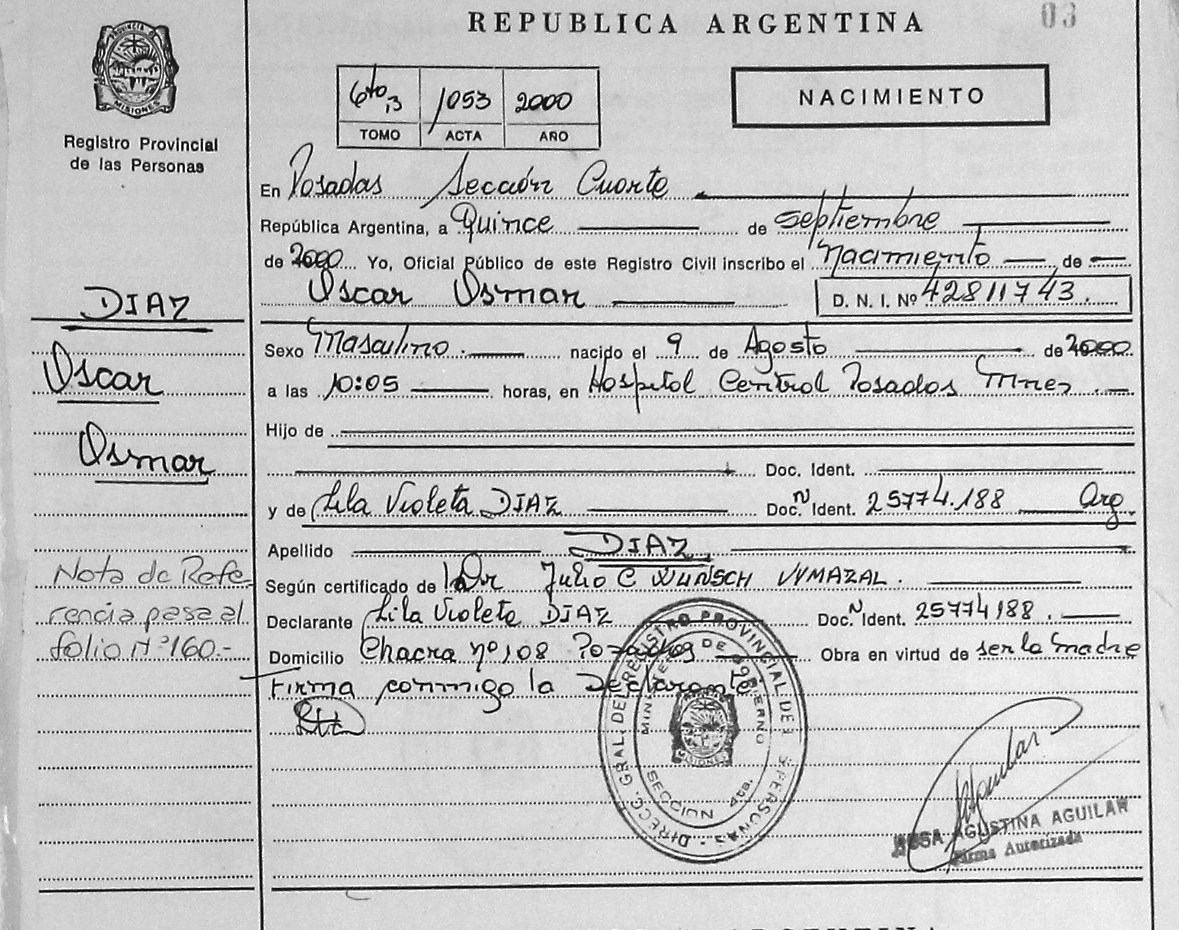 REPUBLICA ARGENTINA
03
PROVINCIA DE MISIONES
Registro Provincial
de las Personas
6to, 3 1053 2000
TOMO ACTA AÑO
NACIMIENTO
En Posadas Sección Cuarta
República Argentina, a Quince de septiembre
de 2000 Yo, Oficial Público de este Registro Civil inscribo el Nacimiento de
Oscar Osmar D. N. I. Nº 42811743.
Sexo Masculino. nacido el 9 de Agosto de 2000
a las 10:05 horas, en Hospital Central Posadas Mnes.
Hijo de
Doc. Ident.
y de Lila Violeta DIAZ Doc. N Ident. 25774.188 Arg.
Apellido DIAZ
Según certificado de Dr Julio C WUNSCH VYMAZAL.
Declarante Lila Violeta DIAZ Doc. N Ident. 25774188.
Domicilio Chacra nº 108 Posadas Obra en virtud de ser la madre
Firma conmigo la Declarante
DIAZ
Oscar
Osmar
Nota de Refe-
rencia pasa al
folio Nº 160.-
DIRECC. GRAL. DEL REGISTRO PROVINCIAL DE PERSONAS
MINISTERIO DE GOBIERNO
MISIONES
SECCION 4ta.
Aguilar
ROSA AGUSTINA AGUILAR
Firma Autorizada